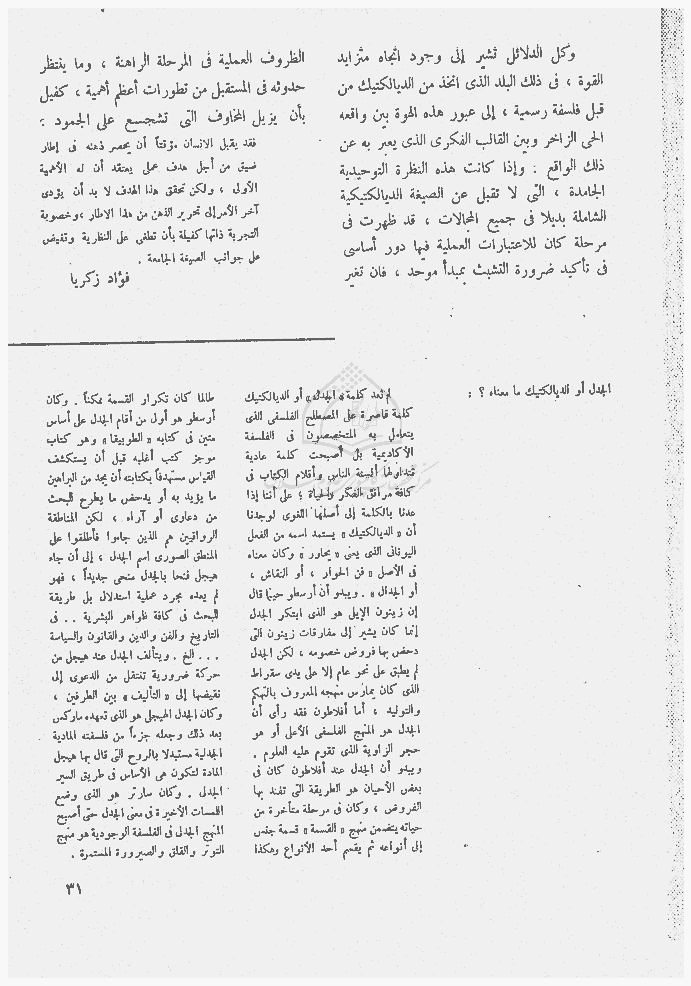 وكل الدلائل تشير إلى وجود اتجاه متزايد
القوة ، فى ذلك البلد الذى اتخذ من الديالكتيك من
قبل فلسفة رسمية ، إلى عبور هذه الهوة بين واقعه
الحى الزاخر وبين القالب الفكرى الذى يعبر به عن
ذلك الواقع . وإذا كانت هذه النظرة التوحيدية
الجامدة ، التى لا تقبل عن الصيغة الديالكتيكية
الشاملة بديلا فى جميع المجالات ، قد ظهرت فى
مرحلة كان للاعتبارات العملية فيها دور أساسى
فى تأكيد ضرورة التشبث بمبدأ موحد ، فان تغير
الظروف العملية فى المرحلة الراهنة ، وما ينتظر
حدوثه فى المستقبل من تطورات أعظم أهمية ، كفيل
بأن يزيل المخاوف التى تشجع على الجمود :
فقد يقبل الانسان مؤقتاً أن يحصر ذهنه فى إطار
ضيق من أجل هدف عملى يعتقد أن له الأهمية
الأولى ، ولكن تحقق هذا الهدف لا بد أن يؤدى
آخر الأمر إلى تحرير الذهن من هذا الاطار ، وخصوبة
التجربة ذاتها كفيلة بأن تطغى على النظرية وتفيض
على جوانب الصيغة الجامعة .
فؤاد زكريا
الجدل أو الديالكتيك ما معناه ؟ :
لم تعد كلمة « الجدل » أو الديالكتيك
كلمة قاصرة على المصطلح الفلسفى الذى
يتعامل به المتخصصون فى الفلسفة
الأكاديمية بل أصبحت كلمة عادية
تتداولها ألسنة الناس وأقلام الكتاب فى
كافة مرافق الفكر والحياة ؛ على أننا إذا
عدنا بالكلمة إلى أصلها اللغوى لوجدنا
أن « الديالكتيك » يستمد اسمه من الفعل
اليونانى الذى يعنى « يحاور » وكان معناه
فى الأصل « فن الحوار ، أو النقاش ،
أو الجدال » . ويبدو أن أرسطو حينما قال
إن زينون الإيلى هو الذى ابتكر الجدل
إنما كان يشير إلى مفارقات زينون التى
دحض بها فروض خصومه ، لكن الجدل
لم يطبق على نحو عام إلا على يدى سقراط
الذى كان يمارس منهجه المعروف بالتهكم
والتوليد ، أما أفلاطون فقد رأى أن
الجدل هو المنهج الفلسفى الأعلى أو هو
حجر الزاوية الذى تقوم عليه العلوم .
ويبدو أن الجدل عند أفلاطون كان فى
بعض الأحيان هو الطريقة التى تفند بها
الفروض ، وكان فى مرحلة متأخرة من
حياته يتضمن منهج « القسمة » قسمة جنس
إلى أنواعه ثم يقسم أحد الأنواع وهكذا
طالما كان تكرار القسمة ممكناً . وكان
أرسطو هو أول من أقام الجدل على أساس
متين فى كتابه « الطوبيقا » وهو كتاب
موجز كتب أغلبه قبل أن يستكشف
القياس مستهدفاً بكتابته أن يجد من البراهين
ما يؤيد به أو يدحض ما يطرح للبحث
من دعاوى أو آراء ، لكن المناطقة
الرواقيين هم الذين جاءوا فأطلقوا على
المنطق الصورى اسم الجدل ، إلى أن جاء
هيجل فنحا بالجدل منحى جديداً ، فهو
لم يعده مجرد عملية استدلال بل طريقة
للبحث فى كافة ظواهر البشرية . . فى
التاريخ والفن والدين والقانون والسياسة
. . . الخ . ويتألف الجدل عند هيجل من
حركة ضرورية تنتقل من الدعوى إلى
نقيضها إلى « التأليف » بين الطرفين ،
وكان الجدل الهيجلى هو الذى تعهده ماركس
بعد ذلك وجعله جزءاً من فلسفته المادية
الجدلية مستبدلا بالروح التى قال بها هيجل
المادة لتكون هى الأساس فى طريق السير
الجدلى . وكان سارتر هو الذى وضع
اللمسات الأخيرة فى معنى الجدل حتى أصبح
المنهج الجدلى فى الفلسفة الوجودية هو منهج
التوتر والقلق والصيرورة المستمرة .
٣١